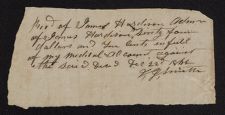 Rec'd of James Hardison Adm'r
of James Hardison, Forty four
dollars and Ten cents in full
of my medical account against
the said Dec'd Dec 22d 1860
Smith